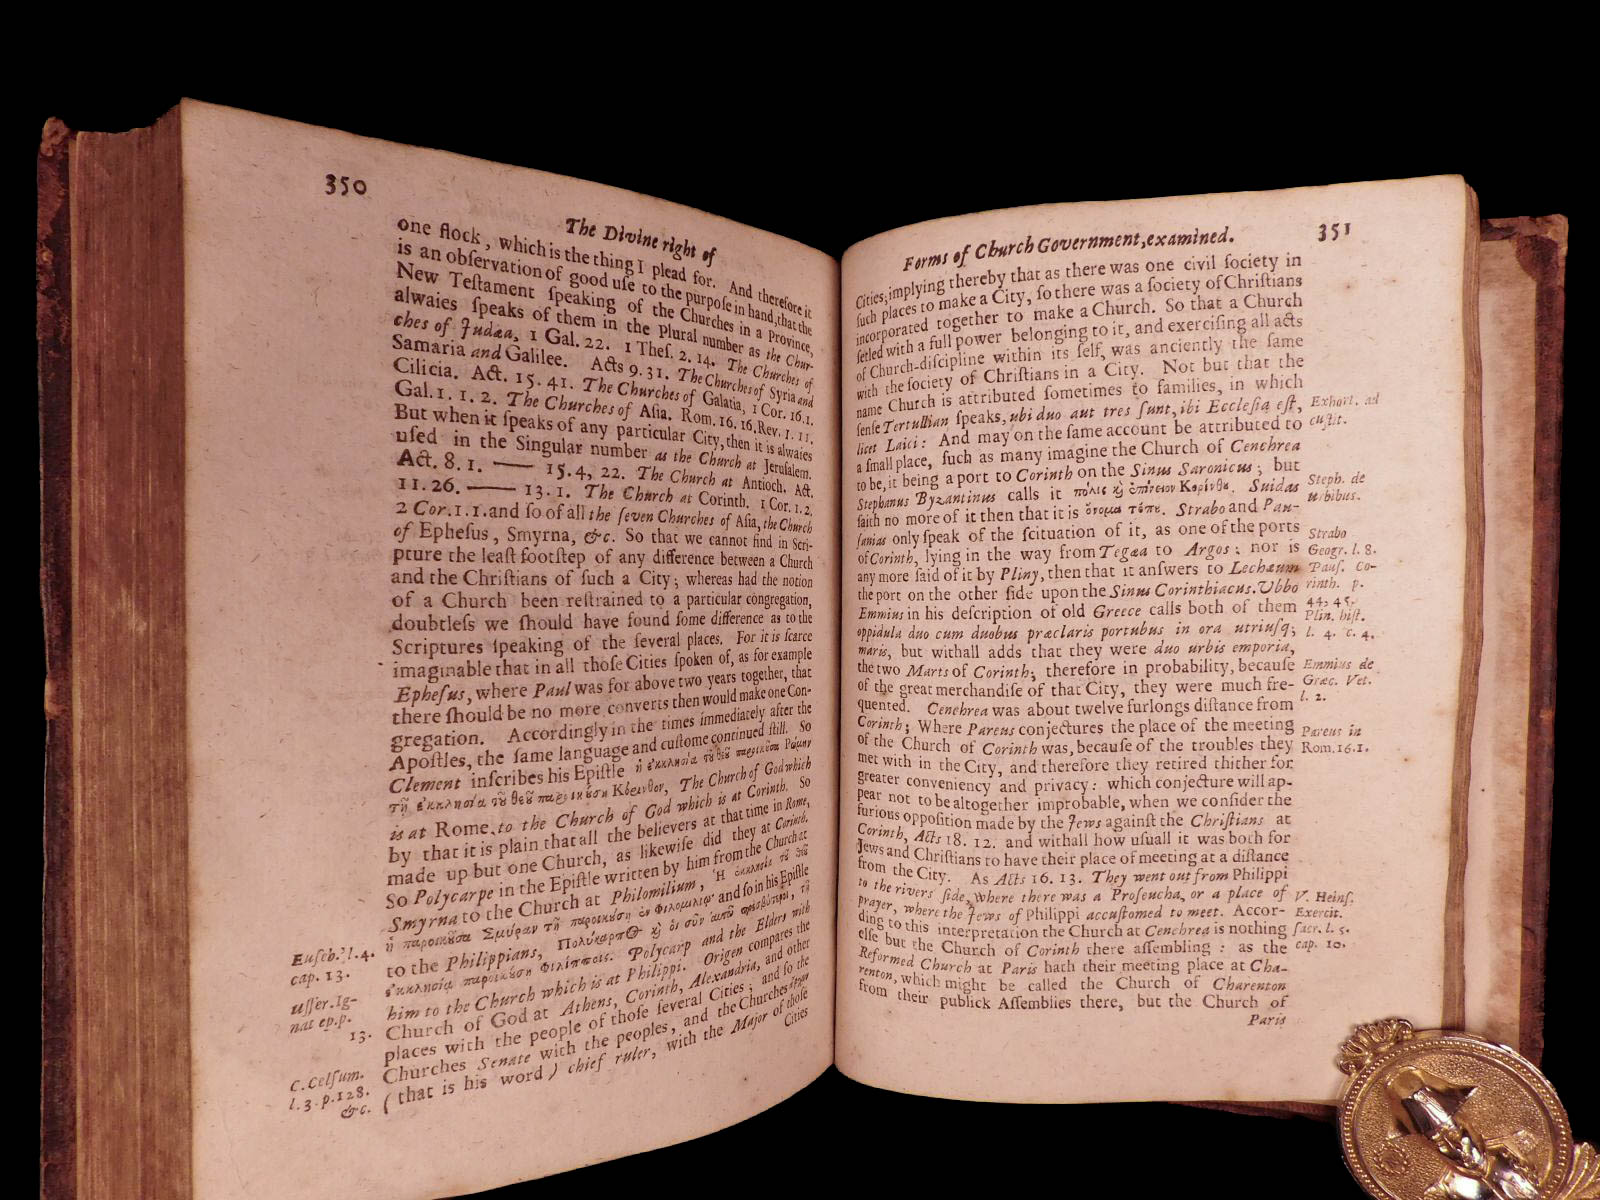 350
The Divine right of
one flock, which is the thing I plead for. And therefore it
is an obſervation of good uſe to the purpoſe in hand, that the
New Teſtament ſpeaking of the Churches in a Province,
alwaies ſpeaks of them in the Plural number as the Chur-
ches of Judæa, 1 Gal. 22. 1 Theſ. 2. 14. The Churches of
Samaria and Galilee. Acts 9. 31. The Churches of Syria and
Cilicia. Act. 15. 41. The Churches of Galatia, 1 Cor. 16. 1.
Gal. 1. 1. 2. The Churches of Aſia. Rom. 16. 16. Rev. 1. 11.
But when it ſpeaks of any particular City, then it is alwaies
uſed in the Singular number as the Church at Jeruſalem.
Act. 8. 1. —— 15. 4, 22. The Church at Antioch. Act.
11. 26. —— 13. 1. The Church at Corinth. 1 Cor. 1. 2.
2 Cor. 1. 1. and ſo of all the ſeven Churches of Aſia, the Church
of Epheſus, Smyrna, &c. So that we cannot find in Scri-
pture the leaſt footſtep of any difference between a Church
and the Chriſtians of ſuch a City; whereas had the notion
of a Church been reſtrained to a particular congregation,
doubtleſs we ſhould have found ſome difference as to the
Scriptures ſpeaking of the ſeveral places. For it is ſcarce
imaginable that in all thoſe Cities ſpoken of, as for example
Epheſus, where Paul was for above two years together, that
there ſhould be no more converts then would make one Con-
gregation. Accordingly in the times immediately after the
Apoſtles, the ſame language and cuſtome continued ſtill. So
Clement inſcribes his Epiſtle ἡ ἐκκλησία τοῦ θεοῦ παροικοῦσα Ῥώμην
τῇ ἐκκλησίᾳ τοῦ θεοῦ παροικούσῃ Κόρινθον, The Church of God which
is at Rome, to the Church of God which is at Corinth. So
by that it is plain that all the believers at that time in Rome,
made up but one Church, as likewiſe did they at Corinth.
So Polycarpe in the Epiſtle written by him from the Church at
Smyrna to the Church at Philomilium, Ἡ ἐκκλησία τοῦ θεοῦ
ἡ παροικοῦσα Σμύρναν τῇ παροικούσῃ ἐν Φιλομιλίῳ and ſo in his Epiſtle
to the Philippians, Πολύκαρπος καὶ οἱ σὺν αὐτῷ πρεσβύτεροι, τῇ
ἐκκλησίᾳ παροικούσῃ Φιλίπποις. Polycarp and the Elders with
him to the Church which is at Philippi. Origen compares the
Church of God at Athens, Corinth, Alexandria, and other
places with the people of thoſe ſeveral Cities; and ſo the
Churches Senate with the peoples, and the Churches
(that is his word) chief ruler, with the Major of thoſe
Cities
Euſeb. l. 4.
cap. 13.
uſſer. Ig-
nat ep. p.
13.
C. Celſum.
l. 3. p. 128.
&c.
351
Forms of Church Government, examined.
Cities; implying thereby that as there was one civil ſociety in
ſuch places to make a City, ſo there was a ſociety of Chriſtians
incorporated together to make a Church. So that a Church
ſetled with a full power belonging to it, and exerciſing all acts
of Church-diſcipline within its ſelf, was anciently the ſame
with the ſociety of Chriſtians in a City. Not but that the
name Church is attributed ſometimes to families, in which
ſenſe Tertullian ſpeaks, ubi duo aut tres ſunt, ibi Eccleſia eſt,
licet Laici: And may on the ſame account be attributed to
a ſmall place, ſuch as many imagine the Church of Cenchrea
to be, it being a port to Corinth on the Sinus Saronicus; but
Stephanus Byzantinus calls it πόλις καὶ ἐπίνειον Κορίνθου. Suidas
ſaith no more of it then that it is ὄνομα τόπου. Strabo and Pau-
ſanias only ſpeak of the ſcituation of it, as one of the ports
of Corinth, lying in the way from Tegæa to Argos; nor is
any more ſaid of it by Pliny, then that it anſwers to Lechæum
the port on the other ſide upon the Sinus Corinthiacus. Ubbo
Emmius in his deſcription of old Greece calls both of them
oppidula duo cum duobus præclaris portubus in ora utriuſq;
maris, but withall adds that they were duo urbis emporia,
the two Marts of Corinth; therefore in probability, becauſe
of the great merchandiſe of that City, they were much fre-
quented. Cenchrea was about twelve furlongs diſtance from
Corinth; Where Pareus conjectures the place of the meeting
of the Church of Corinth was, becauſe of the troubles they
met with in the City, and therefore they retired thither for
greater conveniency and privacy: which conjecture will ap-
pear not to be altogether improbable, when we conſider the
furious oppoſition made by the Jews againſt the Chriſtians at
Corinth, Acts 18. 12. and withall how uſuall it was both for
Jews and Chriſtians to have their place of meeting at a diſtance
from the City. As Acts 16. 13. They went out from Philippi
to the rivers ſide, where there was a Proſeucha, or a place of
prayer, where the Jews of Philippi accuſtomed to meet. Accor-
ding to this interpretation the Church at Cenchrea is nothing
elſe but the Church of Corinth there aſſembling: as the
Reformed Church at Paris hath their meeting place at Cha-
renton, which might be called the Church of Charenton
from their publick Aſſemblies there, but the Church of
Paris
Exhort. ad
caſtit.
Steph. de
Urbibus.
Strabo
Geogr. l. 8.
Pauſ. Co-
rinth. p.
44, 45.
Plin. hiſt.
l. 4. c. 4.
Emmius de
Græc. Vet.
l. 2.
Pareus in
Rom. 16. 1.
V. Heinſ.
Exercit.
ſacr. l. 5.
cap. 10.